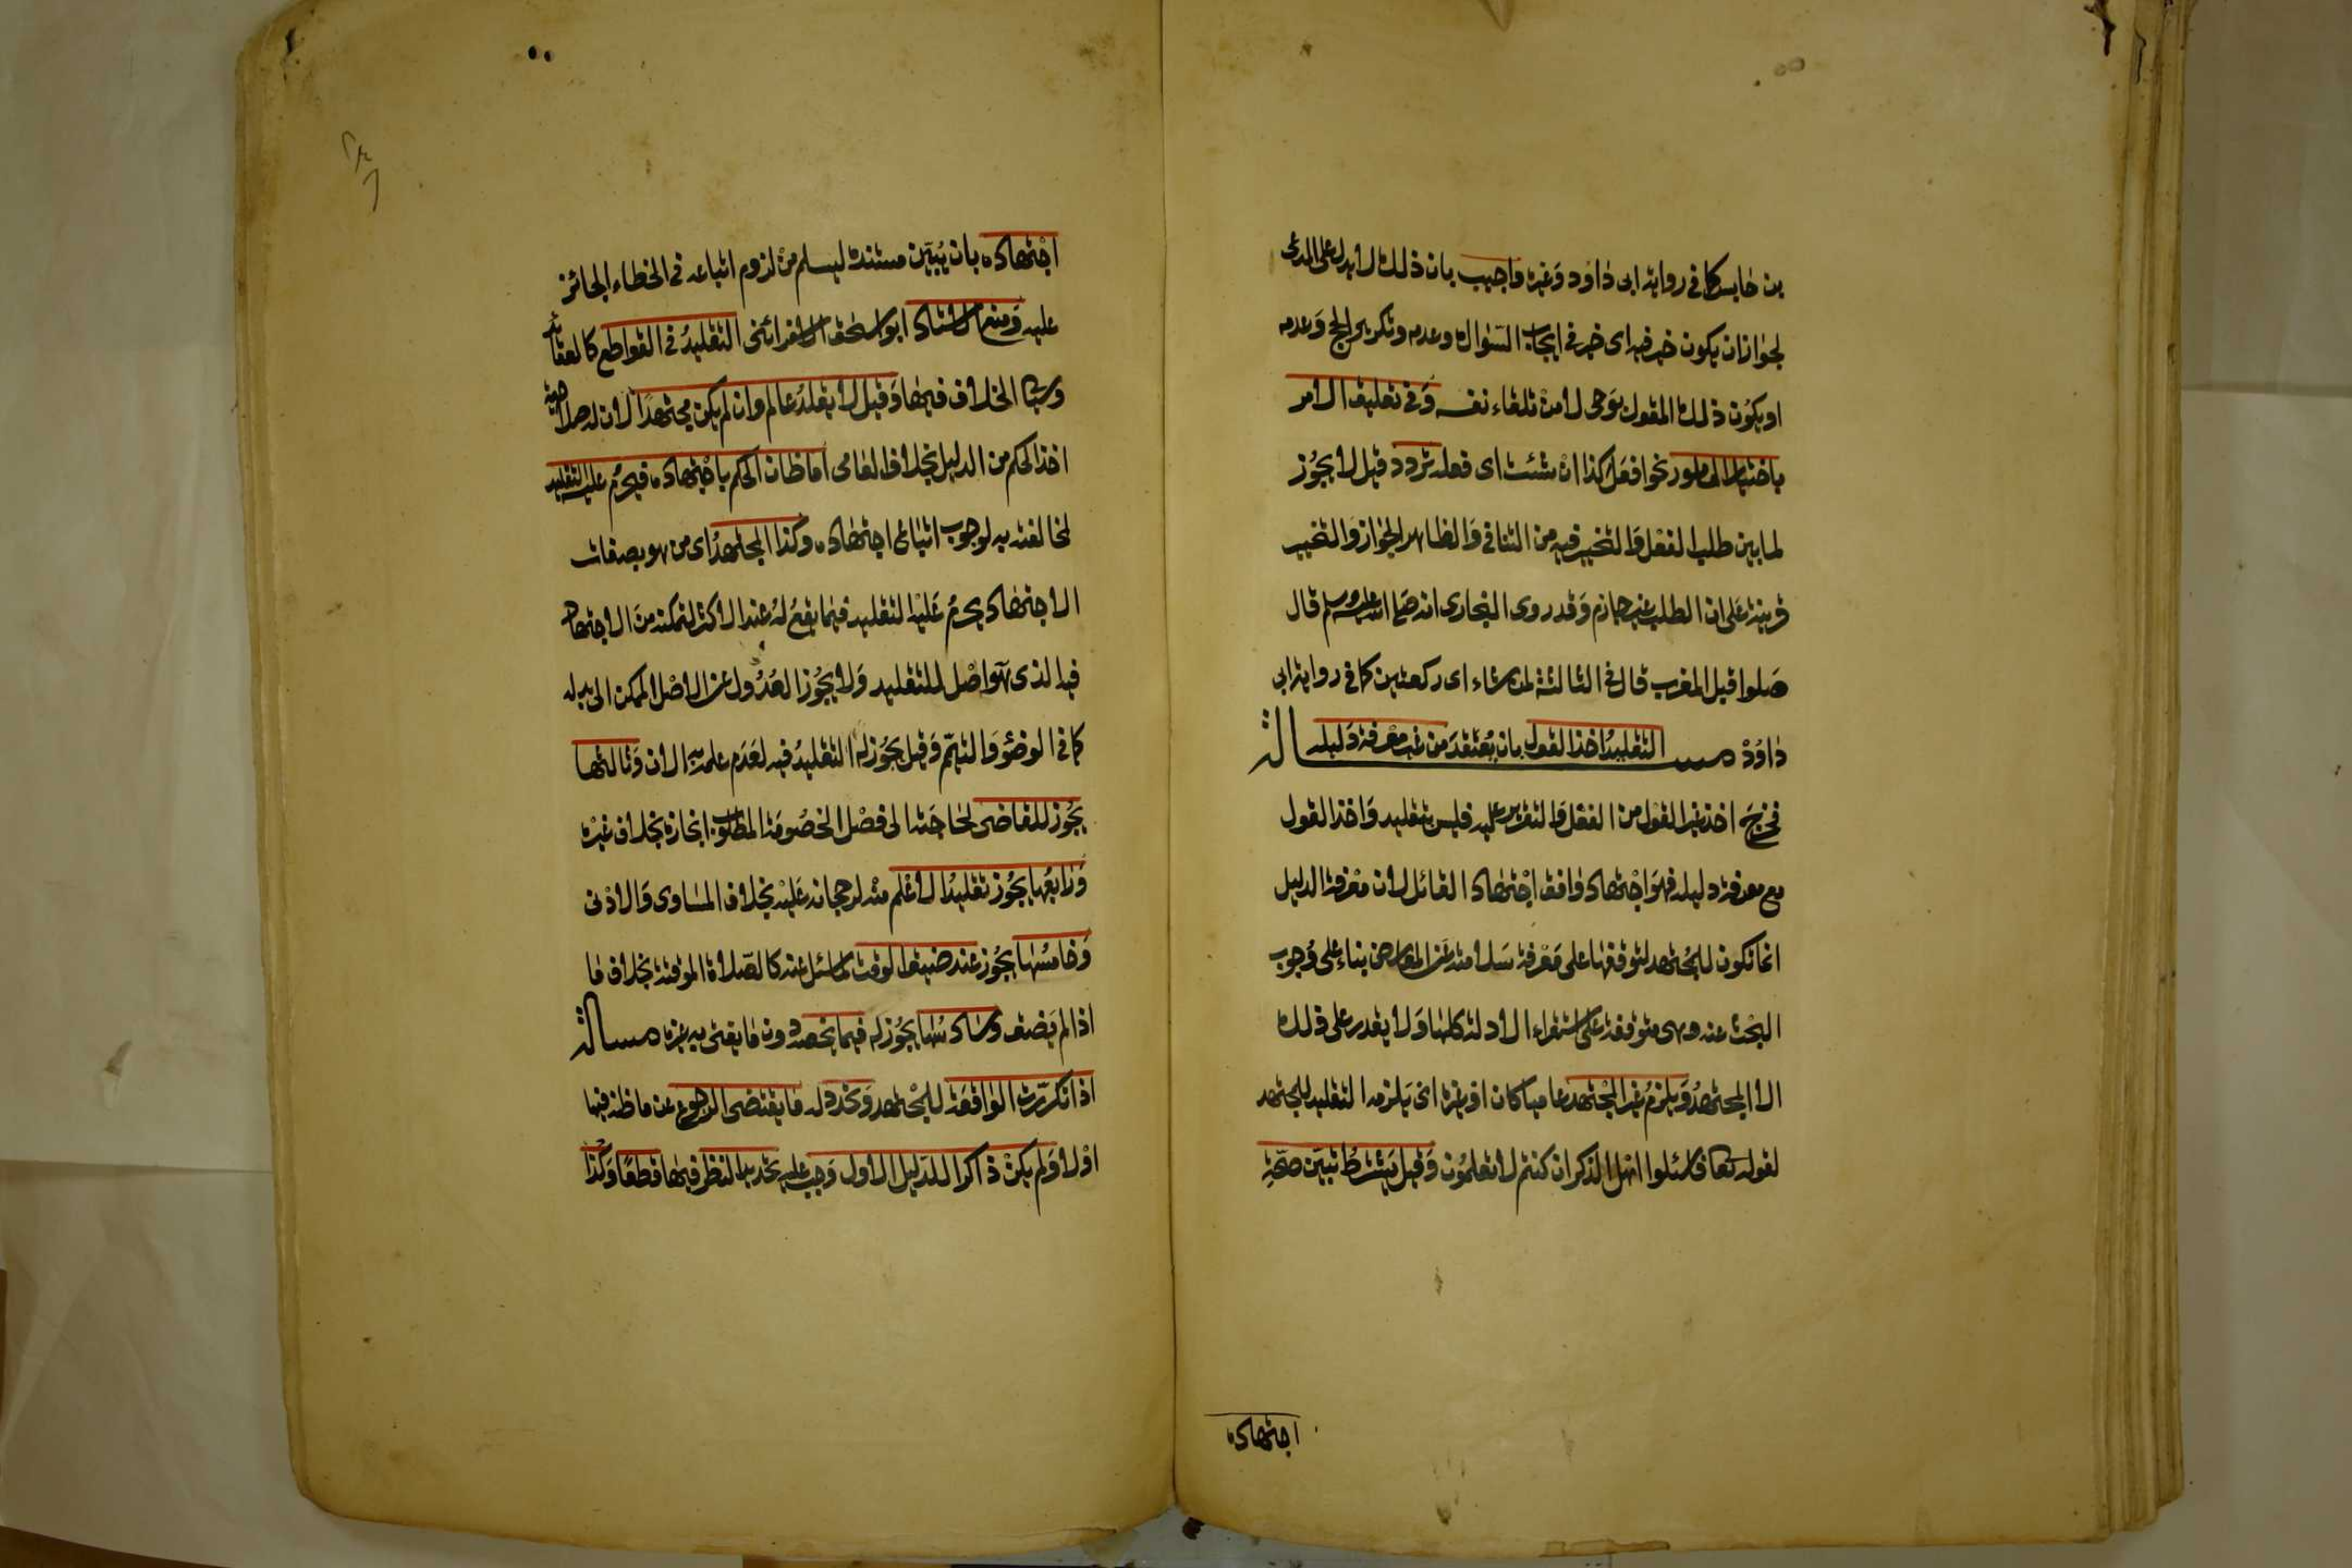 بن حابس كما في رواية ابى داود وغيره واجيب بان ذلك لا يدل على المدعى
لجواز ان يكون خير فيه اى خير في ايجاب السؤال وعدمه وتكرير الحج وعدمه
او يكون ذلك المقول بوحى لا من تلقاء نفسه وفي تعليق الامر
باختيار المامور نحو افعل كذا ان شئت اى فعله تردد قيل لا يجوز
لما بين طلب الفعل والتخيير فيه من التنافي والظاهر الجواز والتخيير
قرينة على ان الطلب غير جازم وقد روى البخارى انه صلى الله عليه وسلم قال
صلوا قبل المغرب قال في الثالثة لمن شاء اى ركعتين كما في رواية ابى
داود مسالة التقليد اخذ القول بان يعتقد من غير معرفة دليله
فخرج اخذ غير القول من الفعل والتقرير عليه فليس بتقليد واخذ القول
مع معرفة دليله فهو اجتهاد وافق اجتهاد القائل لان معرفة الدليل
انما تكون للمجتهد لتوقفها على معرفة سلامته عن المعارض بناء على وجوب
البحث عنه وهى متوقفة على استقراء الادلة كلها ولا يقدر على ذلك
الا المجتهد ويلزم غير المجتهد عاميا كان او غيره اى يلزمه التقليد للمجتهد
لقوله تعا فاسئلوا اهل الذكر ان كنتم لا تعلمون وقيل يشترط تبين صحة
اجتهاده
اجتهاده بان يتبين مستنده ليسلم من لزوم اتباعه في الخطاء الجائز
عليه ومنع الاستاد ابو اسحق الاسفرائنى التقليد في القواطع كالعقائد
وسياتى الخلاف فيها وقيل لا يقلد عالم وان لم يكن مجتهدا لان له صلاحية
اخذ الحكم من الدليل بخلاف العامى اما ظان الحكم باجتهاده فيحرم عليه التقليد
لمخالفته به لوجوب اتباع اجتهاده وكذا المجتهد اى من هو بصفات
الاجتهاد يحرم عليه التقليد فيما يقع له عند الاكثر لتمكنه من الاجتهاد
فيه الذى هو اصل للتقليد ولا يجوز العدول عن الاصل الممكن الى بدله
كما في الوضؤ والتيمم وقيل يجوز له التقليد فيه لعدم علمه به الان وثالثها
يجوز للقاضى لحاجته الى فصل الخصومة المطلوب انجازه بخلاف غيره
ورابعها يجوز تقليد الاعلم منه لرجحانه عليه بخلاف المساوى والادنى
وخامسها يجوز عند ضيق الوقت لما سئل عنه كالصلاة الموقتة بخلاف ما
اذا لم يضف وسادسها يجوز له فيما يخصه دون ما يفتى به غيره مسالة
اذا تكررت الواقعة للمجتهد وتجدد له ما يقتضى الرجوع عن ما ظنه فيها
اولا ولم يكن ذاكرا للدليل الاول وجب عليه تجديد النظر فيها قطعا وكذا